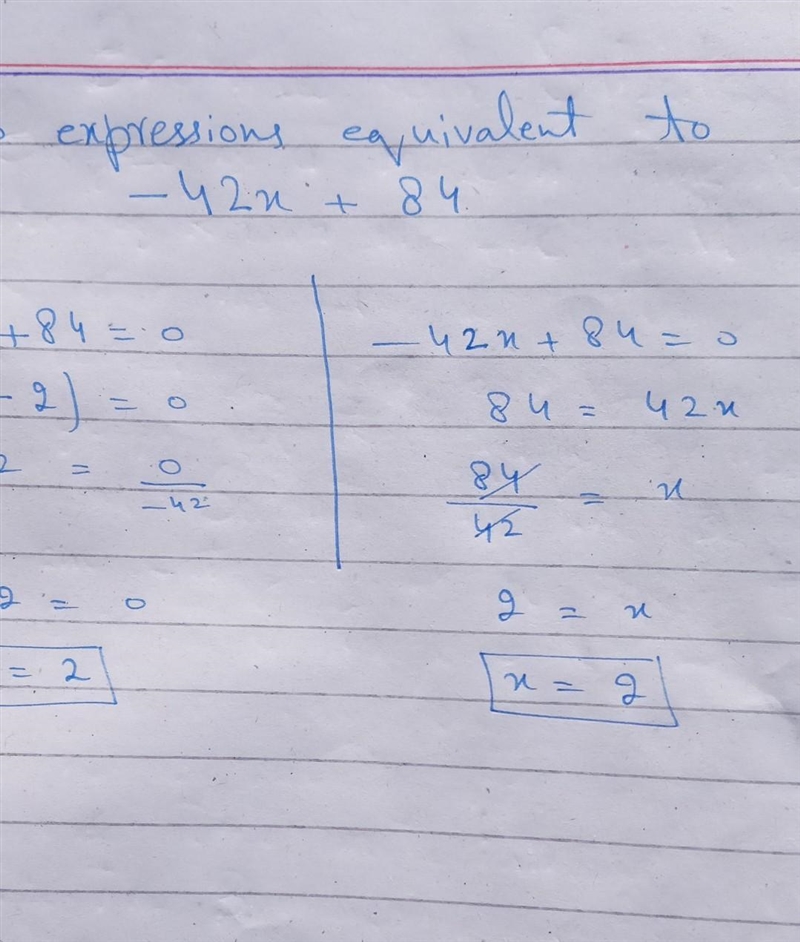 expressions equivalent to
-42x + 84
+84 = 0
- 2) = 0
2 = 0/-42
2 = 0
= 2
-42x + 84 = 0
84 = 42x
84/42 = x
2 = x
x = 2